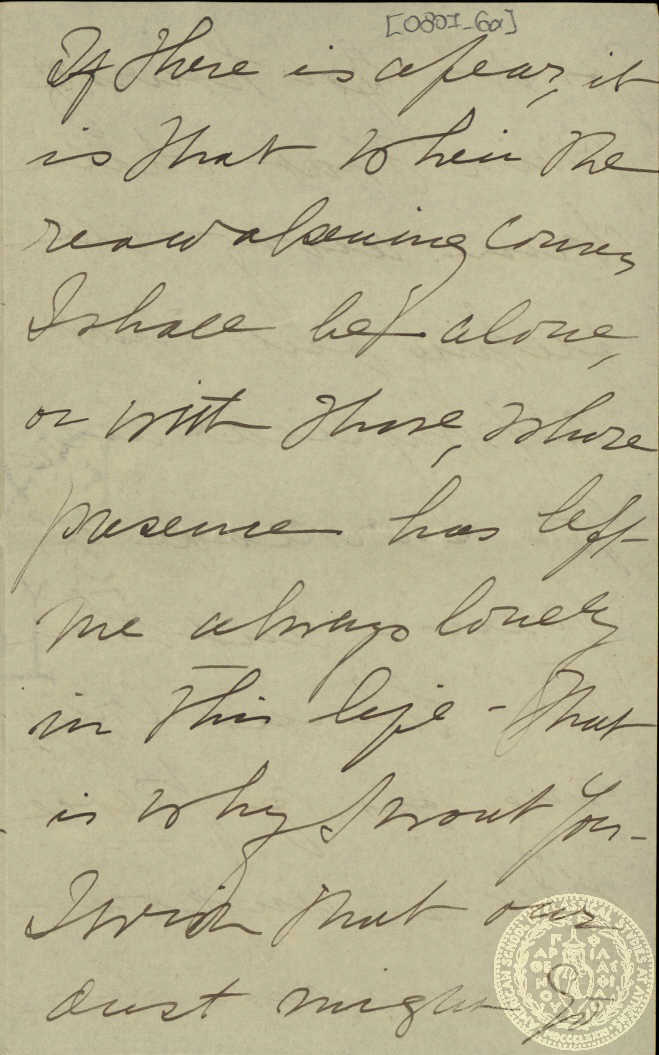 [0801-6a]
If there is a fear, it
is that when the
reawakening comes
I shall be alone,
or with those, whose
presence has left
me always lonely
in this life - That
is why I want you -
I wish that our
dust might